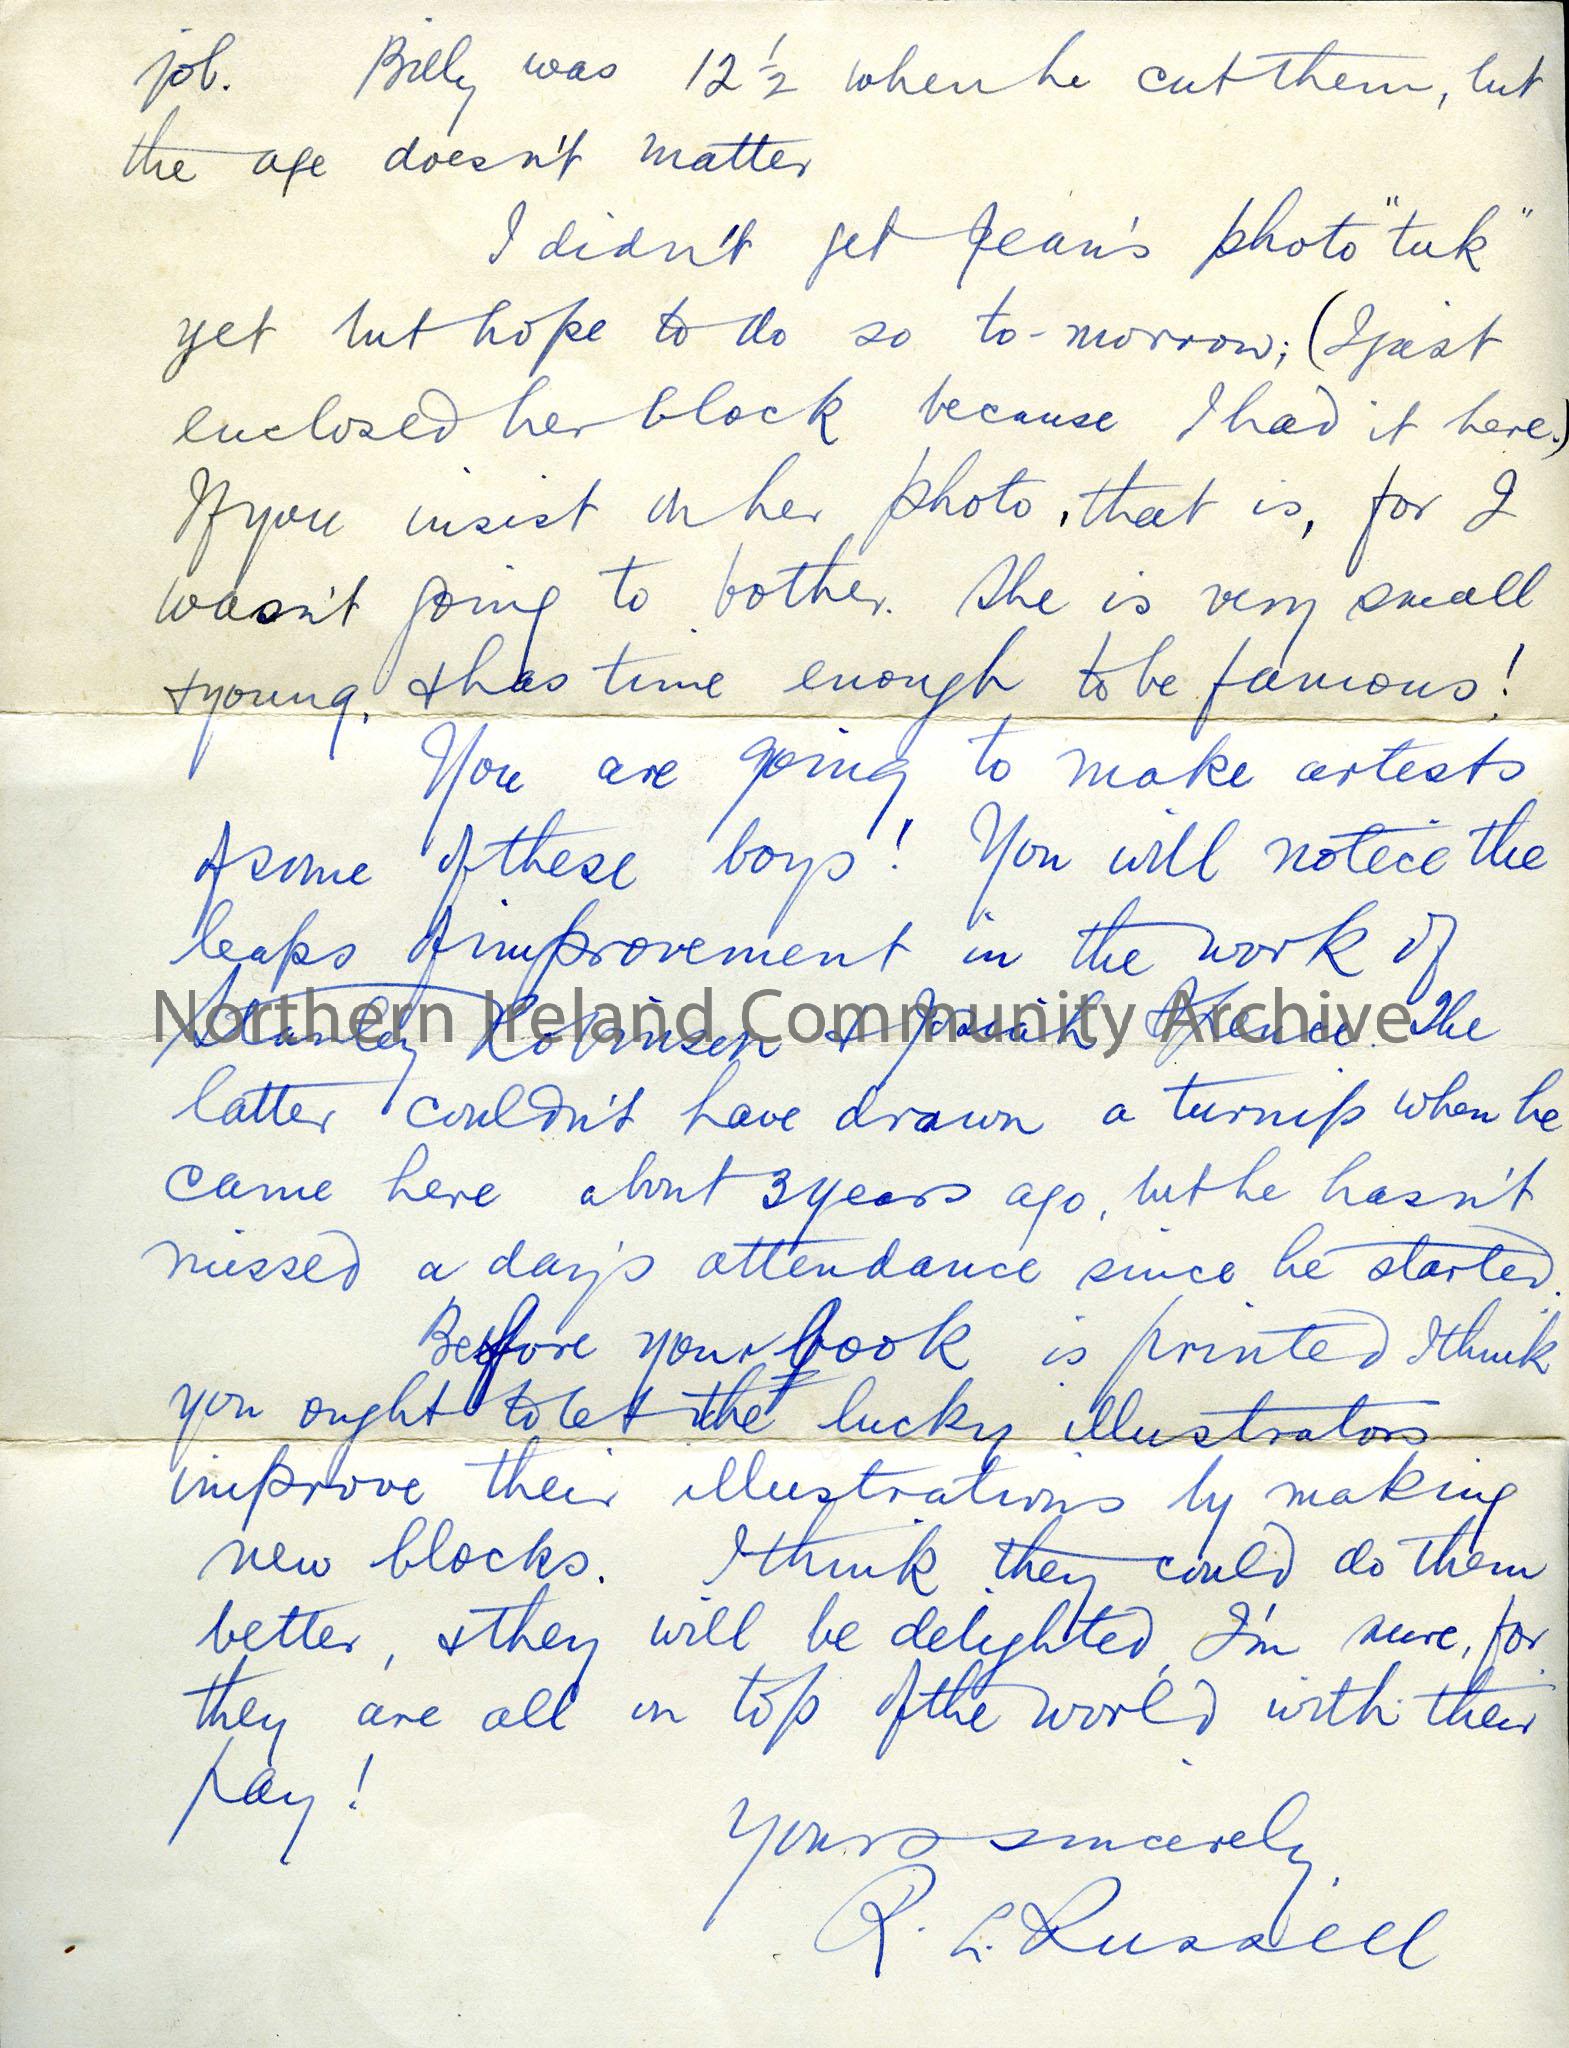 job. Billy was 12 1/2 when he cut them, but
the age doesn't matter
I didn't get Jean's photo "tuk"
yet but hope to do so to-morrow; (I just
enclosed her block because I had it here.)
If you insist on her photo, that is, for I
wasn't going to bother. She is very small
& young, & has time enough to be famous!
You are going to make artists
of some of these boys! You will notice the
leaps of improvement in the work of
Stanley Robinson & Josiah The
Northern Ireland Community Archive
latter couldn't have drawn a turnip when he
came here about 3 years ago, but he hasn't
missed a day's attendance since he started.
Before your book is printed I think
you ought to let the lucky illustrators
improve their illustrations by making
new blocks. I think they could do them
better, & they will be delighted, I'm sure, for
they are all on top of the world with their
pay!
Yours sincerely,
R. L. Russell